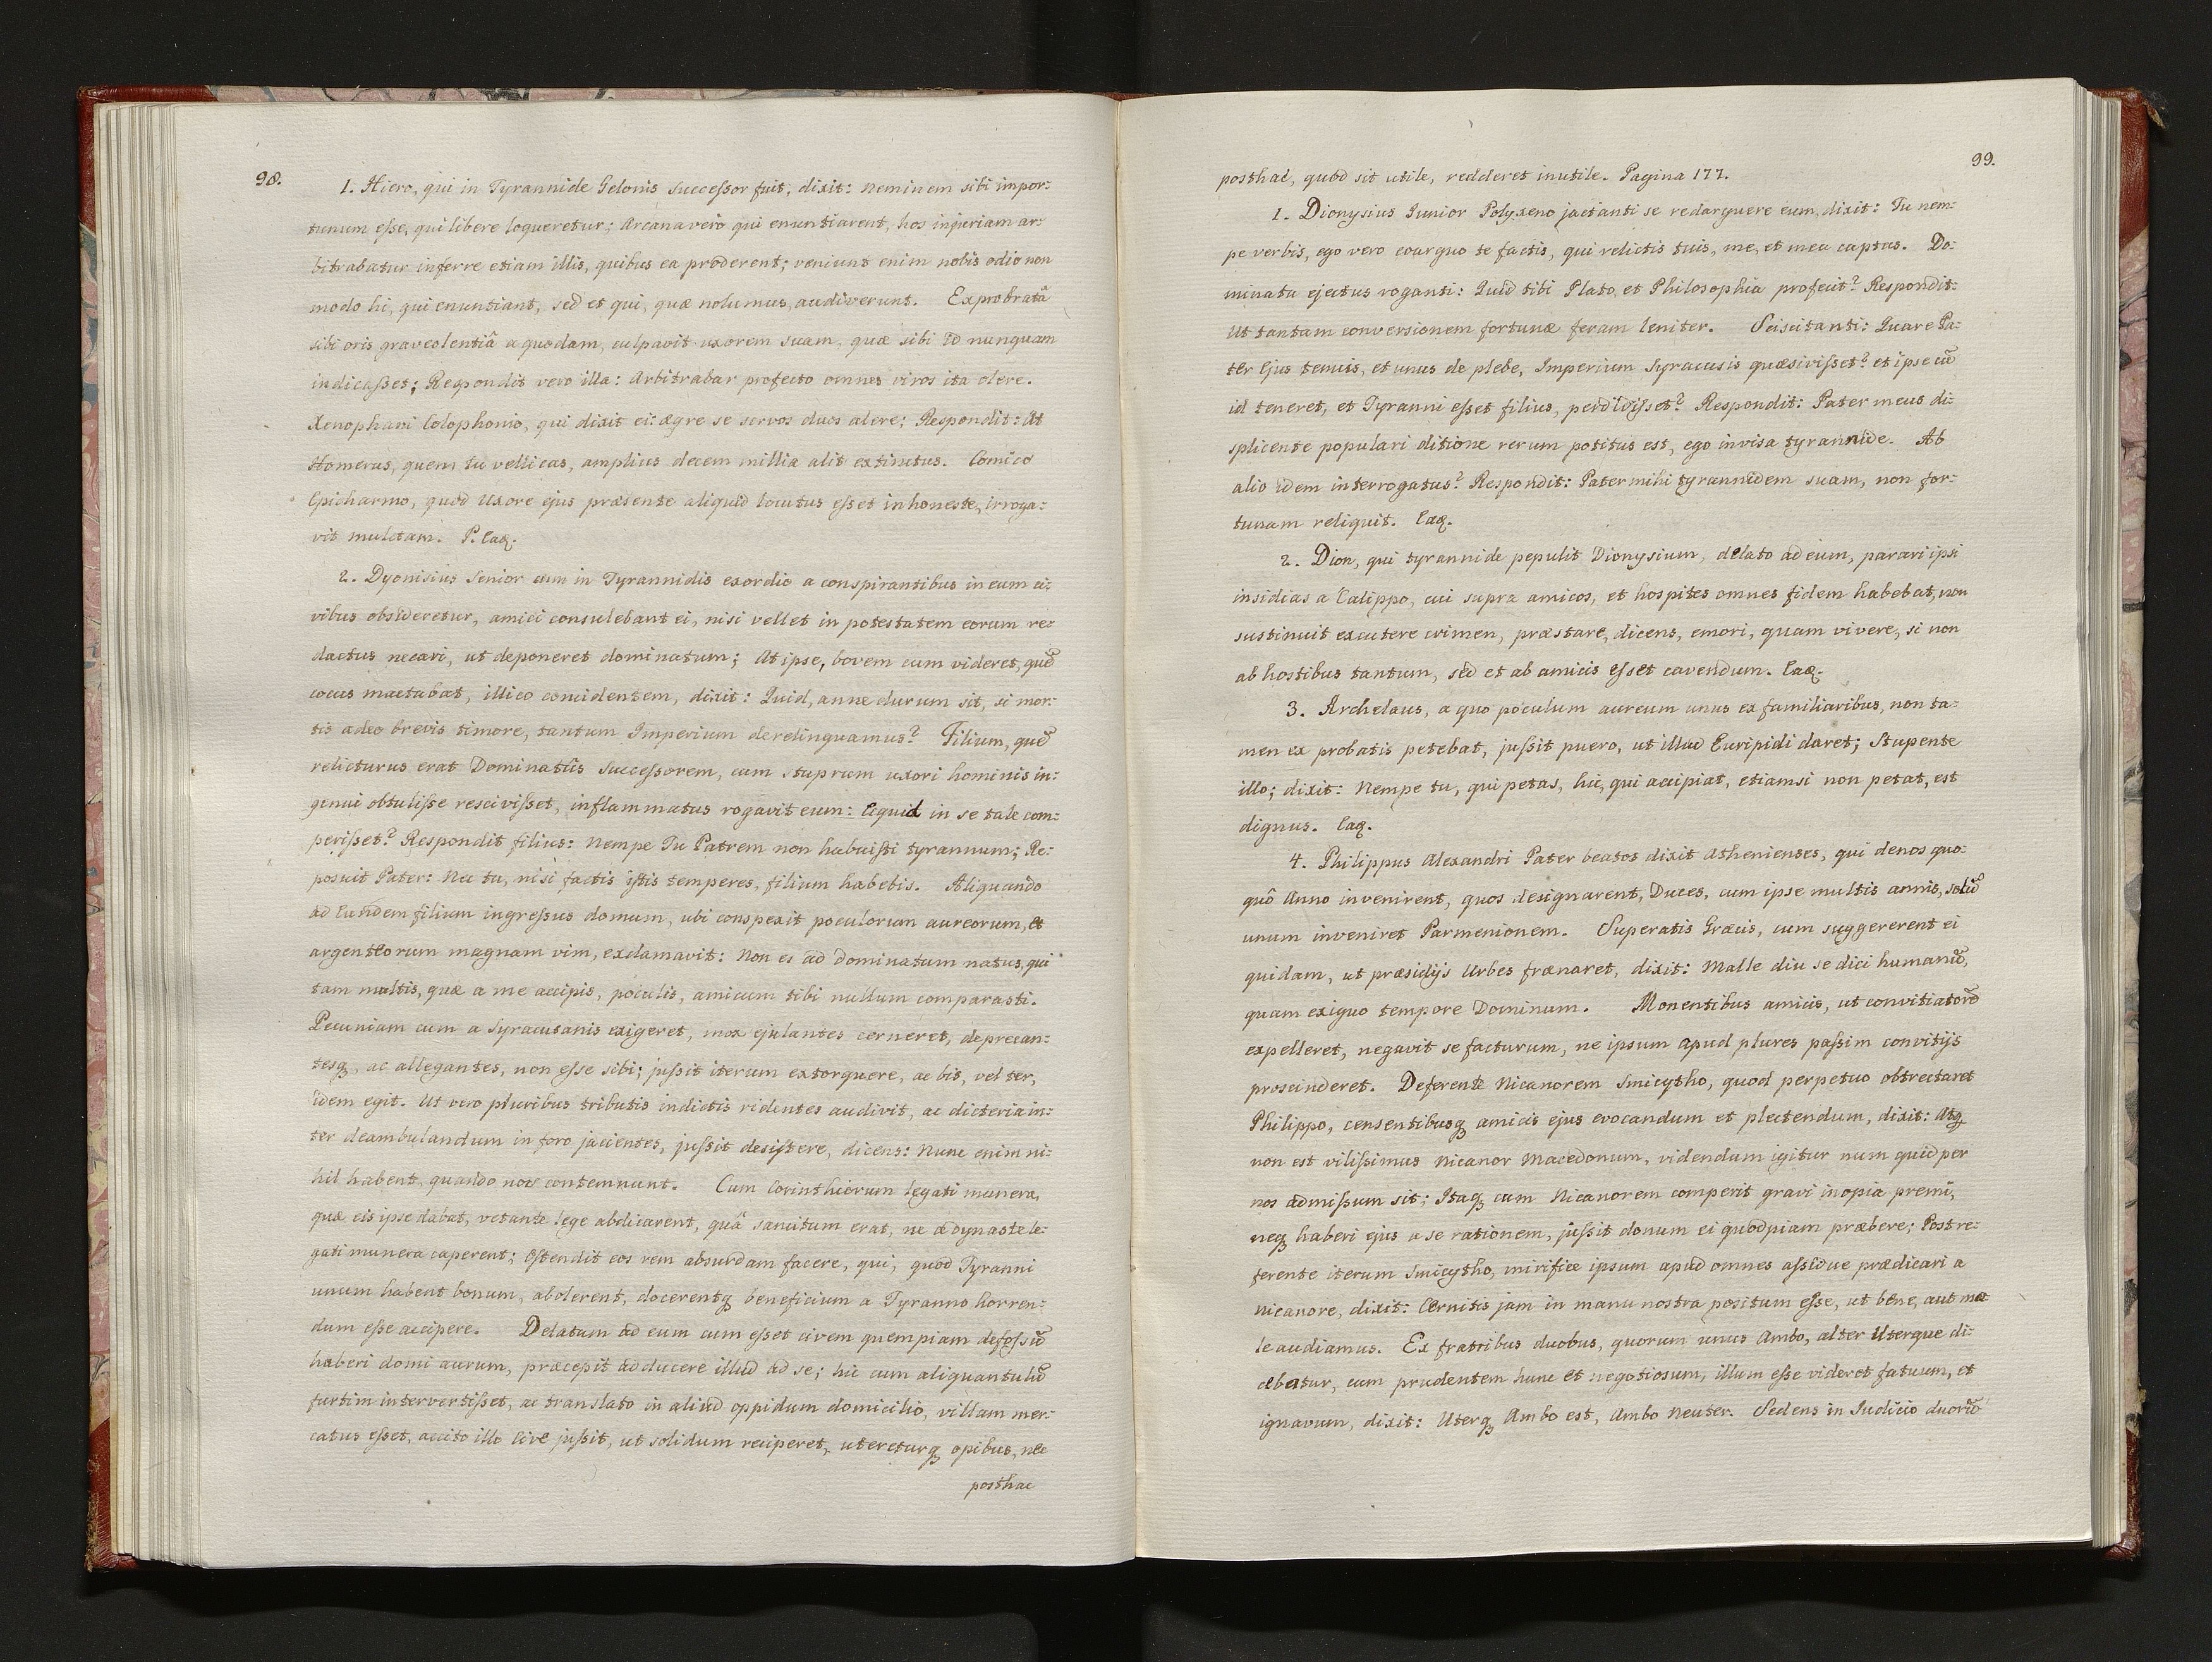 98.
1. Hiero, qui in Tyrannide Gelonis Successor fuit, dixit: neminem sibi impor:
tunum esse, qui libere loqueretur; Arcana vero qui enuntiarent, hos injuriam ar:
bitrabatur inferre etiam illis, quibus ea proderent; veniunt enim nobis odio non
modo hi, qui enuntiant, sed et qui, quæ nolumus, audiverunt. Exprobratâ
sibi oris graveolentiâ a quodam, culpavit uxorem suam, quæ sibi id nunquam
indicasset; Respondit vero illa: Arbitrabar profecto omnes viros ita olere.
Xenophani Colophonio, qui dixit ei: ægre se servos duos alere; Respondit: At
Homerus, quem tu vellicas, amplius decem millia alit extinctus. Comico
Epicharmo, quod Uxore ejus præsente aliquid locutus esset inhoneste, irroga:
vit mulctam. P. Eaq.
2. Dyonisius Senior cum in Tyrannidis exordio a conspirantibus in eum ci:
vibus obsideretur, amici consulebant ei, nisi vellet in potestatem eorum re:
dactus necari, ut deponeret dominatum; At ipse, bovem cum videret, quē
cocus mactabat, illico concidentem, dixit: Quid, anne durum sit, si mor:
tis adeo brevis timore, tantum Imperium derelinquamus? Filium, quē
relicturus erat Dominatûs Successorem, cum stuprum uxori hominis in:
genui obtulisse rescivisset, inflammatus rogavit eum: Ecquid in se tale com:
perisset? Respondit filius: Nempe Tu Patrem non habuisti tyrannum; Re:
posuit Pater: Nec tu, nisi factis istis temperes, filium habebis. Aliquando
ad Eundem filium ingressus domum, ubi conspexit poculorum aureorum, et
argenteorum magnam vim, exclamavit: Non es ad dominatum natus, qui
tam multis, quæ a me accipis, poculis, amicum tibi nullum comparasti.
Pecuniam cum a Syracusanis exigeret, mox ejulantes cerneret, deprecan:
tesq, ac allegantes, non esse sibi; jussit iterum extorquere, ac bis, vel ter,
idem egit. Ut vero pluribus tributis indictis ridentes audivit, ac dicteria in:
ter deambulandum in foro jacientes, jussit desistere, dicens: Nunc enim ni:
hil habent, quando nos contemnunt. Cum Corinthiorum legati munera,
quæ eis ipse dabat, vetante lege abdicarent, quâ sancitum erat, ne a dynaste le:
gati munera caperent; Ostendit eos rem absurdam facere, qui, quod Tyranni
unum habent bonum, abolerent, docerentq beneficium a Tyranno horren:
dum esse accipere. Delatum ad eum cum esset civem quempiam defossū
haberi domi aurum, præcepit adducere illud ad se; hic cum aliquantulū
furtim intervertisset, ac translato in aliud oppidum domicilio, villam mer:
catus esset, accito illo Cive jussit, ut solidum reciperet, utereturq opibus, nec
posthac
99.
posthac, quod sit utile, redderet inutile. Pagina 177.
1. Dionysius Junior Polyxeno jactanti se redarguere eum, dixit: Tu nem:
pe verbis, ego vero coarguo te factis, qui relictis tuis, me, et mea captas. Do:
minatu ejectus roganti: Quid tibi Plato, et Philosophia profecit? Respondit:
Ut tantam conversionem fortunæ feram leniter. Sciscitanti: Quare Pa:
ter Ejus tenuis, et unus de plebe, Imperium Syracusis quæsivisset? et ipse cū
id teneret, et Tyranni esset filius, perdidisset? Respondit: Pater meus di:
splicente populari ditione rerum potitus est, ego invisa tyrannide. Ab
alio idem interrogatus? Respondit: Pater mihi tyrannidem suam, non for:
tunam reliquit. Eaq.
2. Dion, qui tyrannide pepulit Dionysium, delato ad eum, parari ipsi
insidias a Calippo, cui supra amicos, et hospites omnes fidem habebat, non
sustinuit excutere crimen, præstare, dicens, emori, quam vivere, si non
ab hostibus tantum, sed et ab amicis esset cavendum. Eaq.
3. Archelaus, a quo poculum aureum unus ex familiaribus, non ta:
men ex probatis petebat, jussit puero, ut illud Euripidi daret; Stupente
illo; dixit: Nempe tu, qui petas, hic, qui accipiat, etiamsi non petat, est
dignus. Eaq.
4. Philippus Alexandri Pater beatos dixit Athenienses, qui denos quo:
quô Anno invenirent, quos designarent, Duces, cum ipse multis annis, solū
unum inveniret Parmenionem. Superatis Græcis, cum suggererent ei
quidam, ut præsidijs Urbes frænaret, dixit: Malle diu se dici humanū,
quam exiguo tempore Dominum. Monentibus amicis, ut convitiatorē
expelleret, negavit se facturum, ne ipsum apud plures passim convitijs
proscinderet. Deferente Nicanorem Smicytho, quod perpetuo obtrectaret
Philippo, censentibusq amicis ejus evocandum et plectendum, dixit: Atq
non est vilissimus Nicanor Macedonum, videndum igitur num quid per
nos admissum sit; Itaq cum Nicanorem comperit gravi inopia premi,
neq haberi ejus a se rationem, jussit donum ei quodpiam præbere; Post re:
ferente iterum Smicytho, mirifice ipsum apud omnes assidue prædicari a
Nicanore, dixit: Cernitis jam in manu nostra positum esse, ut bene, aut ma
le audiamus. Ex fratribus duobus, quorum unus Ambo, alter Uterque di:
cebatur, cum prudentem hunc et negotiosum, illum esse videret fatuum, et
ignavum, dixit: Uterq Ambo est, Ambo Neuter. Sedens in Iudicio duorū